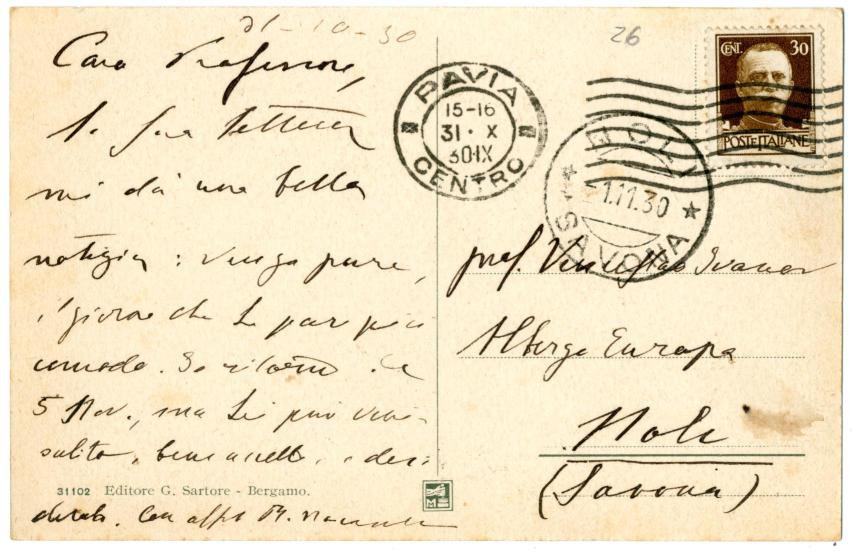 31-10-30
26
Caro Professore,
la Sua lettera
mi dà una bella
notizia: venga pure,
il giorno che Le par più
comodo. Io ritorno il
5 Nov., ma Lei può venir
subito, bene accetto e desi-
derato. Con aff.
31102 Editore G. Sartore - Bergamo.
PAVIA
15-16
31·X
30·IX
CENTRO
NOLI
-1.11.30
SAVONA
CENT. 30
POSTE ITALIANE
prof. Venceslao Ivanov
Albergo Europa
Noli
(Savona)